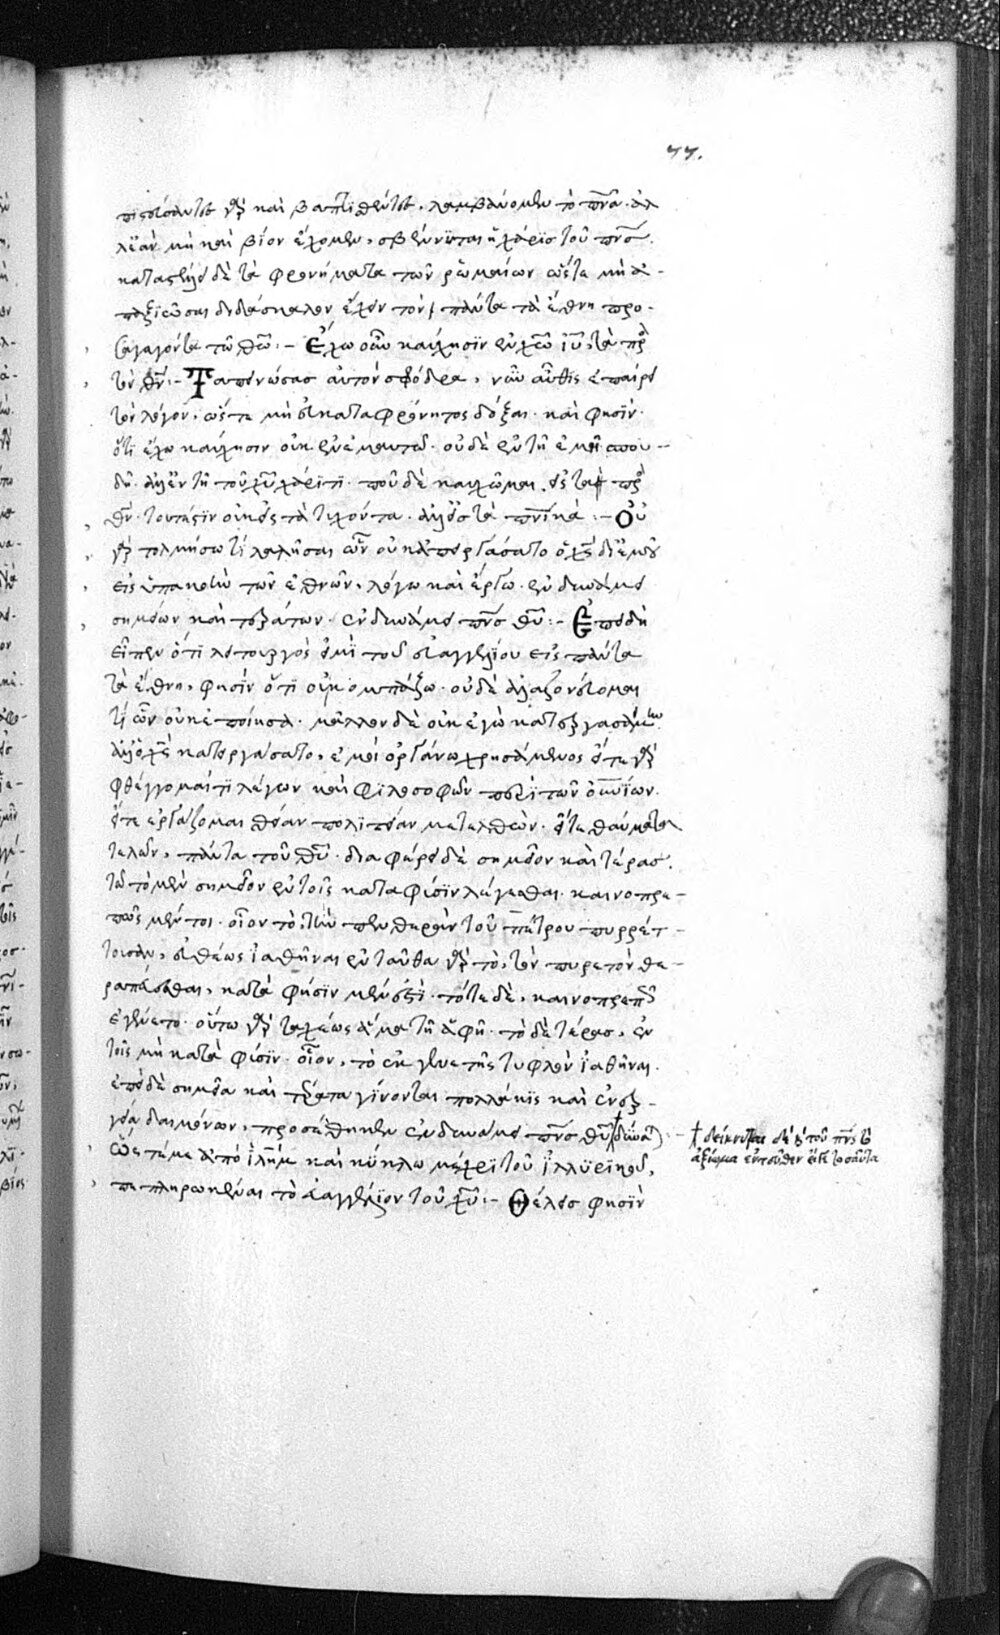 77.
πιστεύσαντες γὰρ καὶ βαπτισθέντες, λαμβάνομεν τὸ πνα. ἀλ
λ' ἐὰν μὴ καὶ βίον ἔχομεν, σβέννυται ἡ χάρις τοῦ πνς.
καταστέλλει δὲ τὰ φρονήματα τῶν ῥωμαίων ὥστε μὴ ἀ-
παξιῶσαι διδάσκαλον ἔχειν τὸν πάντα τὰ ἔθνη προ-
σαγαγόντα τῶ θω:- Ἔχω οὖν καύχησιν ἐν χω ιυ, τὰ πρὸς
τὸν θν:- Ταπεινώσας αὐτὸν σφόδρα, νῦν αὖθις ἐπαίρει
τὸν λόγον, ὥστε μὴ εὐκαταφρόνητος δόξαι. καὶ φησίν.
ὅτι ἔχω καύχησιν οὐκ ἐν ἐμαυτῶ. οὐδὲ ἐν τῆ ἐμῆ σπου-
δῆ. ἀλλ' ἐν τῆ τοῦ χυ χάριτι. ποῦ δὲ καυχῶμαι, εἰς τὰ πρὸς
θν. τουτέστιν οὐκ εἰς τὰ τυχόντα. ἀλλ' εἰς τὰ πνικά:- Οὐ
γὰρ τολμήσω τί λαλῆσαι ὧν οὐ κατειργάσατο ὁ χς δι' ἐμοῦ
εἰς ὑπακοὴν τῶν ἐθνῶν, λόγω καὶ ἔργω. ἐν δυνάμει
σημείων καὶ τεράτων. ἐν δυνάμει πνς θυ:- Ἐπειδὴ
εἶπεν ὅτι λειτουργὸς εἰμὶ τοῦ εὐαγγελίου εἰς πάντα
τὰ ἔθνη, φησὶν ὅτι οὐ κομπάζω. οὐδὲ ἀλαζονεύομαι
τί ὧν οὐκ ἐποίησα. μᾶλλον δὲ οὐκ ἐγὼ κατειργασάμην
ἀλλ' ὁ χς κατειργάσατο, ἐμοὶ ὀργάνω χρησάμενος εἴτε γὰρ
φθέγγομαί τι λέγων καὶ φιλοσοφῶν περὶ τῶν ουνίων.
εἴτε ἐργάζομαι θείαν πολιτείαν μετελθών. εἴτε θαύματα
τελῶν, πάντα τοῦ θυ. διαφέρει δὲ σημεῖον καὶ τέρας.
τῶ τὸ μὲν σημεῖον ἐν τοῖς κατὰ φύσιν λέγεσθαι. καινοπρε-
πῶς μέντοι. οἷον τὸ, τὴν πενθερὰν τοῦ πέτρου πυρέτ-
τουσαν, εὐθέως ἰαθῆναι ἐνταῦθα γὰρ τὸ, τὸν πυρετὸν θε-
ραπεύεσθαι, κατὰ φύσιν μέν ἐστι. τότε δὲ, καινοπρεπῶς
ἐγένετο. οὕτω γὰρ ταχέως ἅμα τῆ ἁφῆ. τὸ δὲ τέρας, ἐν
τοῖς μὴ κατὰ φύσιν. οἷον, τὸ ἐκ γενετῆς τυφλὸν ἰαθῆναι.
ἐπεὶ δὲ σημεῖα καὶ τέρατα γίνονται πολλάκις καὶ ἐνερ-
γεία δαιμόνων, προσέθηκεν ἐν δυνάμει πνς θυ
ὥστε με ἀπὸ ιλημ καὶ κύκλω μέχρι τοῦ ἰλλυρικοῦ,
πεπληρωκέναι τὸ εὐαγγέλιον τοῦ χυ:- Θέλεις φησὶν
δείκνυται τοῦ πνς
ἀξίωμα ἐντεῦθεν